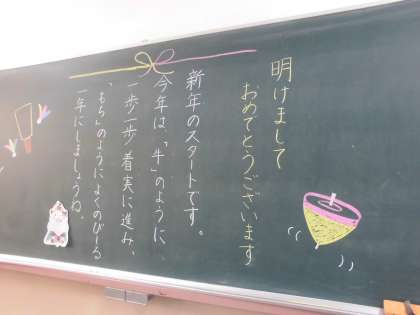 明けまして
おめでとうございます
新年のスタートです。
今年は、「牛」のように、
一歩一歩 着実に進み、
「もち」のようによくのびーる
一年にしましょうね。